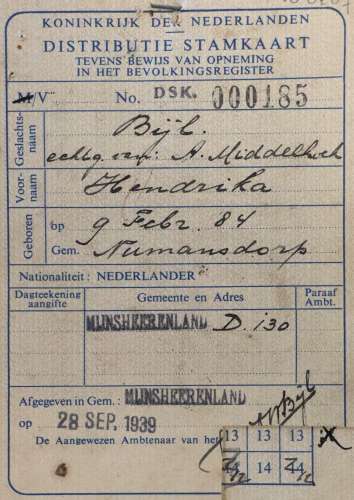 KONINKRIJK DER NEDERLANDEN
DISTRIBUTIE STAMKAART
TEVENS BEWIJS VAN OPNEMING
IN HET BEVOLKINGSREGISTER
M/V No. DSK. 000185
Geslachtsnaam
Bijl.
echtg. van: A. Middelhoek
Voornaam
Hendrika
Geboren
op 9 Febr. 84
Gem. Numansdorp
Nationaliteit: NEDERLANDER
Dagteekening aangifte
Gemeente en Adres
Paraaf Ambt.
MIJNSHEERENLAND D. 130
Afgegeven in Gem.: MIJNSHEERENLAND
op 28 SEP. 1939
De Aangewezen Ambtenaar van het
13 13 13
14 14